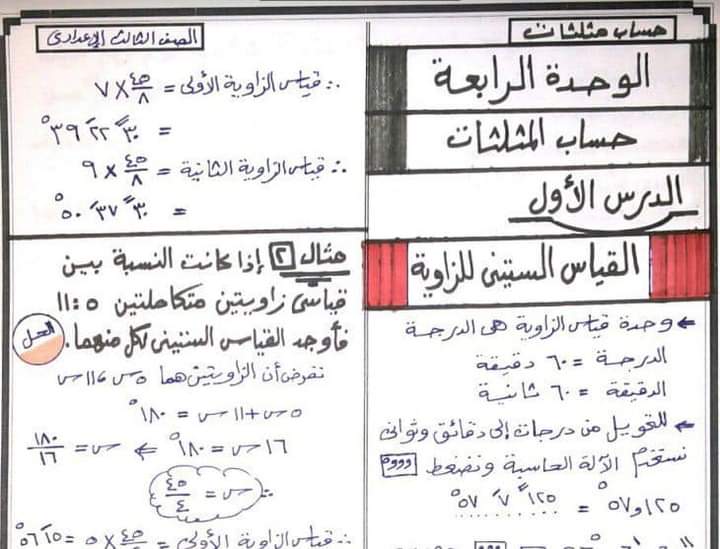 حساب مثلثات
الوحدة الرابعة
حساب المثلثات
الدرس الأول
القياس الستينى للزاوية
← وحدة قياس الزاوية هى الدرجة
الدرجة = ٦٠ دقيقة
الدقيقة = ٦٠ ثانية
← للتحويل من درجات إلى دقائق وثوانى
نستخدم الآلة الحاسبة ونضغط
الصف الثالث الإعدادى
∴ قياس الزاوية الأولى = ٤٥/٨ × ٧
= ٣٠ً ٢٢َ ٣٩°
∴ قياس الزاوية الثانية = ٤٥/٨ × ٩
= ٣٠ً ٣٧َ ٥٠°
مثال ٢ إذا كانت النسبة بين
قياسى زاويتين متكاملتين ٥ : ١١
فأوجد القياس الستينى لكل منهما.
الحل
نفرض أن الزاويتين هما ٥س ، ١١س
٥س + ١١س = ١٨٠°
١٦س = ١٨٠° ← س = ١٨٠/١٦
∴ س = ٤٥/٤
∴ قياس الزاوية الأولى = ٤٥/٤ × ٥ = ١٥َ ٥٦°